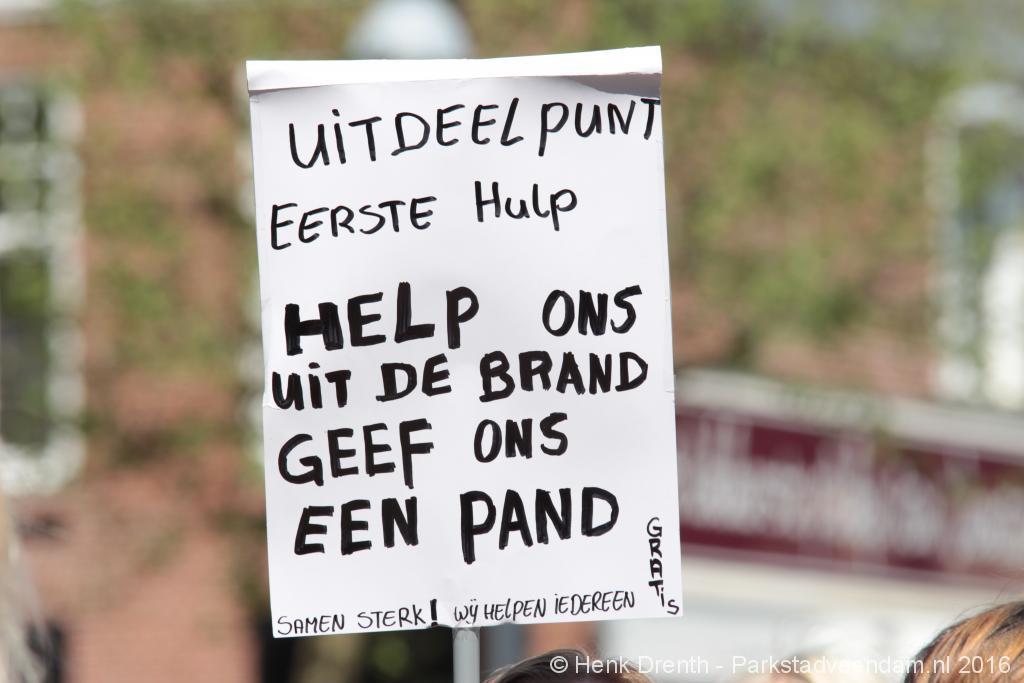 UITDEELPUNT
EERSTE HULP
HELP ONS
UIT DE BRAND
GEEF ONS
EEN PAND
GRATIS
SAMEN STERK! WIJ HELPEN IEDEREEN
© Henk Drenth - Parkstadveendam.nl 2016